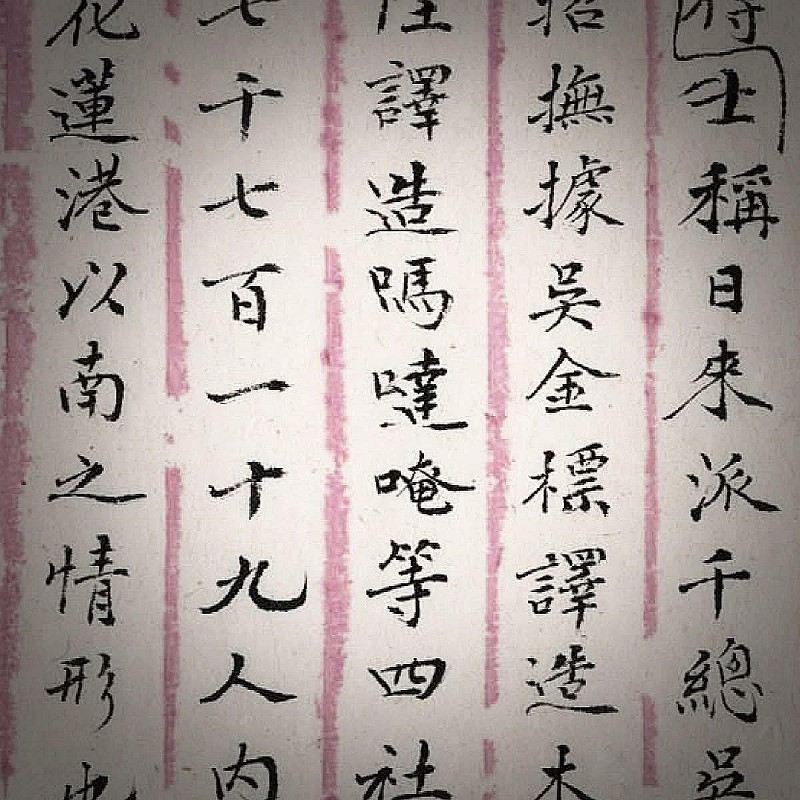 士稱日來派千總吳
招撫據吳金標譯造木
譯造嗎噠唵等四社
七千七百一十九人內
花蓮港以南之情形也